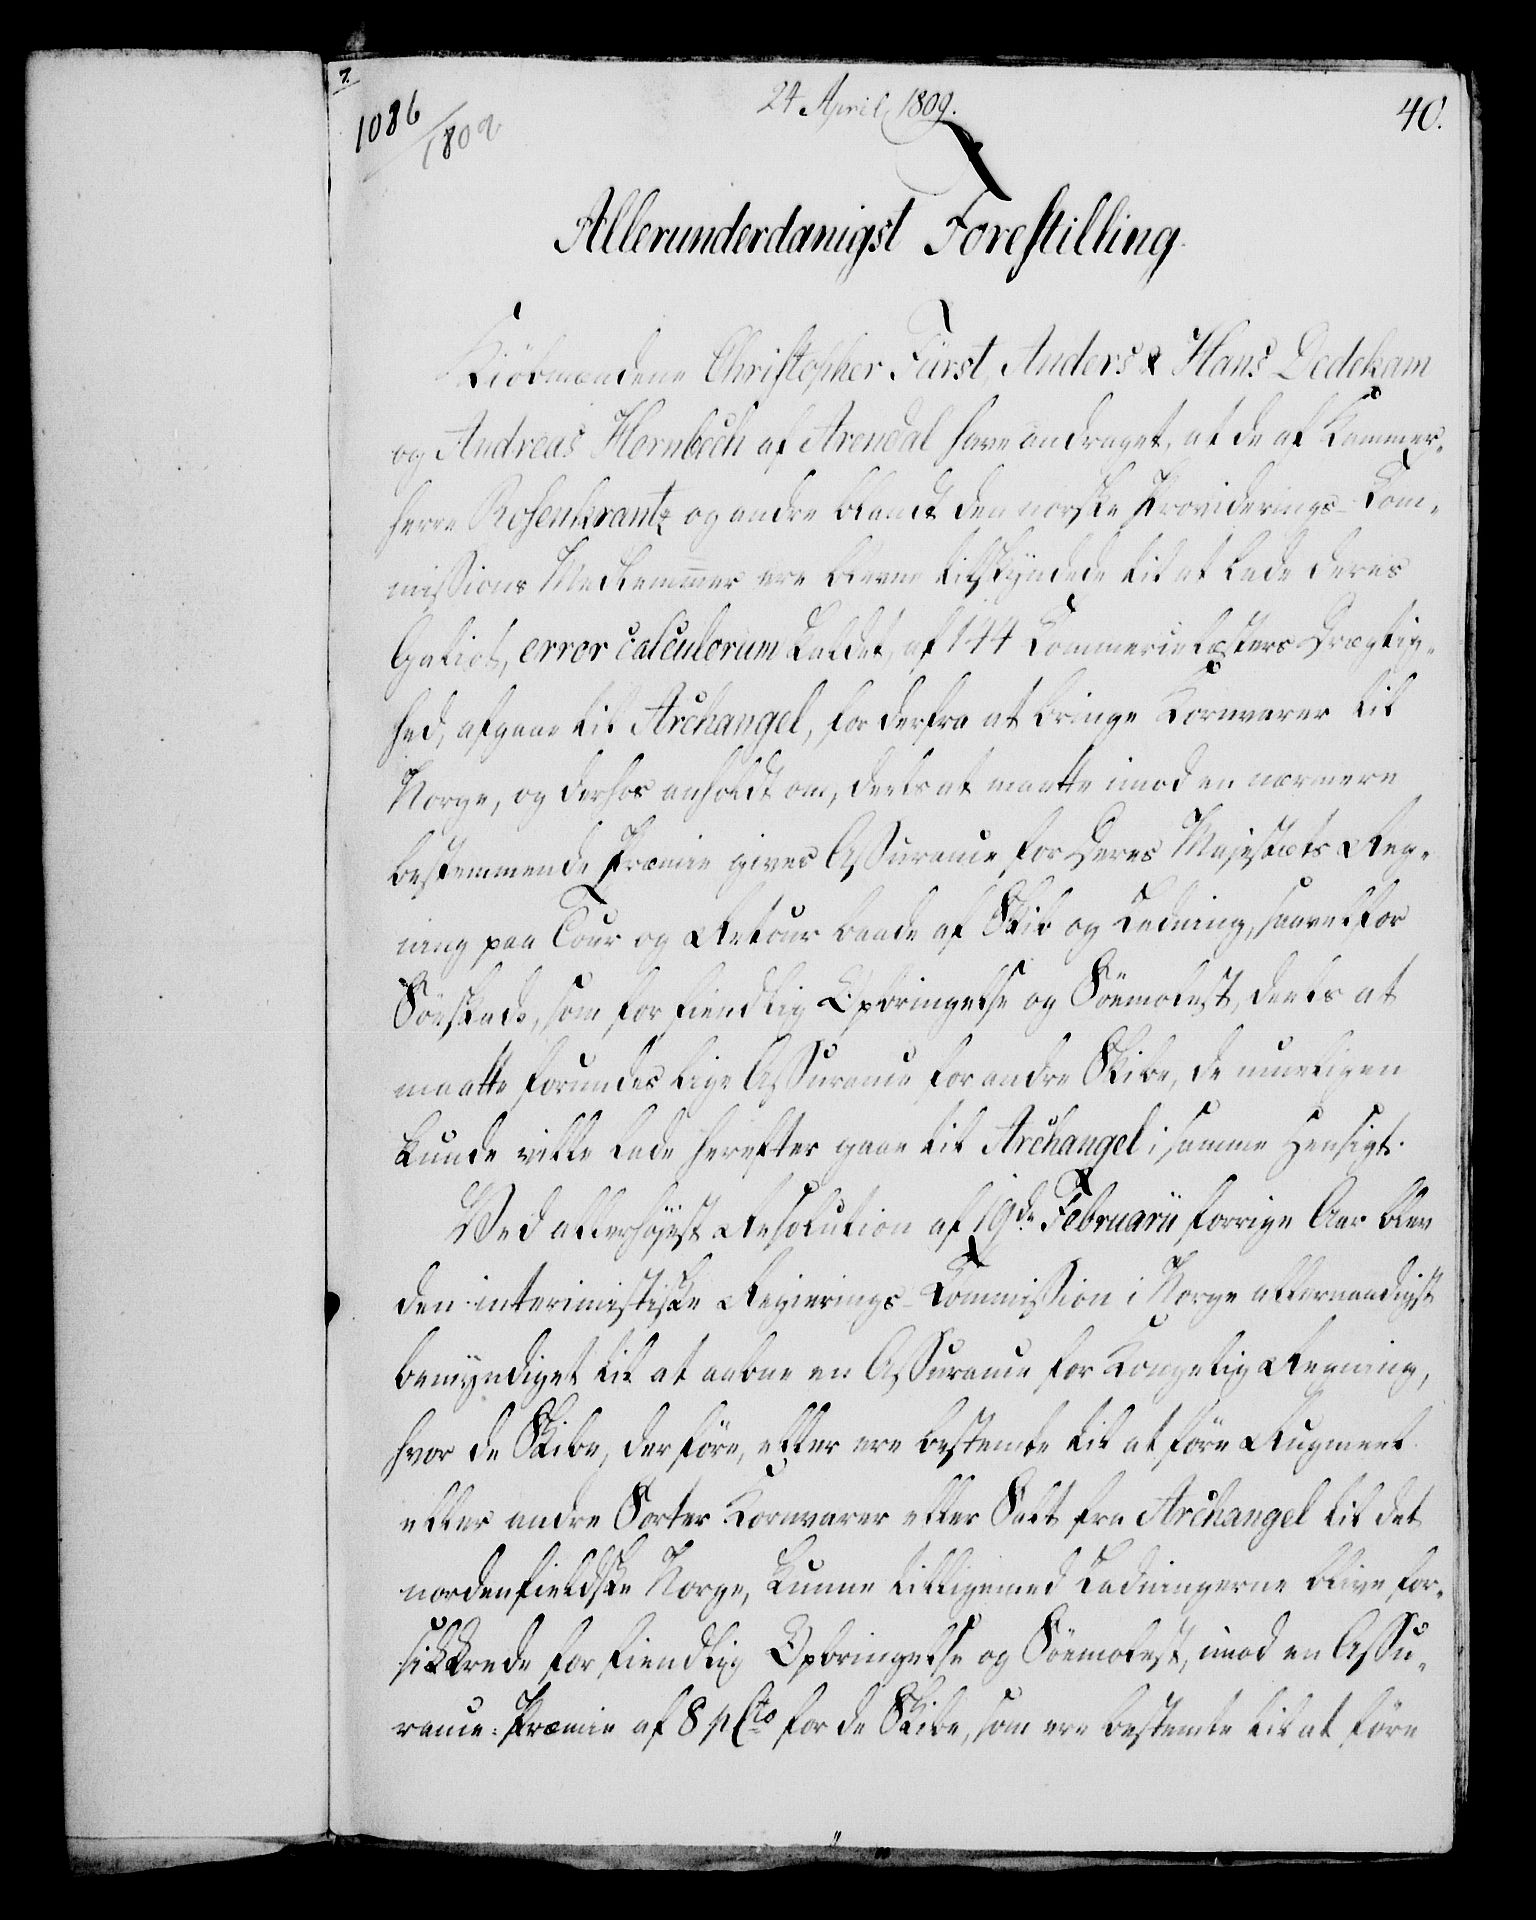 7.
1086/1809
24 April 1809.
40.
Allerunderdanigst Forestilling.
Kiöbmændene Christopher Fürst, Anders & Hans Dedekam
og Andreas Hornbech af Arendal have andraget, at de af Kammer-
herre Rosenkrantz og andre blandt den norske Providerings-Com-
missions Medlemmer ere blevne tilskyndede til at lade deres
Galiot, error calculorum kaldet, af 144 Commercelæsters Drægtig-
hed, afgaae til Archangel, for derfra at bringe Kornvarer til
Norge, og derhos anholdt om, deels at maatte imod en nærmere
bestemmende Præmie gives Assurance for Deres Majestæts Reg-
ning paa Tour og Retour baade af Skib og Ladning, saavel for
Söeskade, som for fiendtlig Opbringelse og Söemolest, deels at
maatte forundes lige Assurance for andre Skibe, de mueligen
kunde ville lade herefter gaae til Archangel i samme Hensigt.
Ved allerhöjest Resolution af 19de Februarii forrige Aar blev
den interimistiske Regierings-Commission i Norge allernaadigst
bemyndiget til at aabne en Assurance for Kongelig Regning,
hvor de Skibe, der före, eller ere bestemte til at före Rugmeel
eller andre Sorter Kornvarer eller Salt fra Archangel til det
nordenfieldske Norge, kunne tilligemed Ladningerne blive for-
sikkrede for fiendtlig Opbringelse og Söemolest, imod en Assu-
rance-Præmie af 8 pCto for de Skibe, som ere bestemte til at före